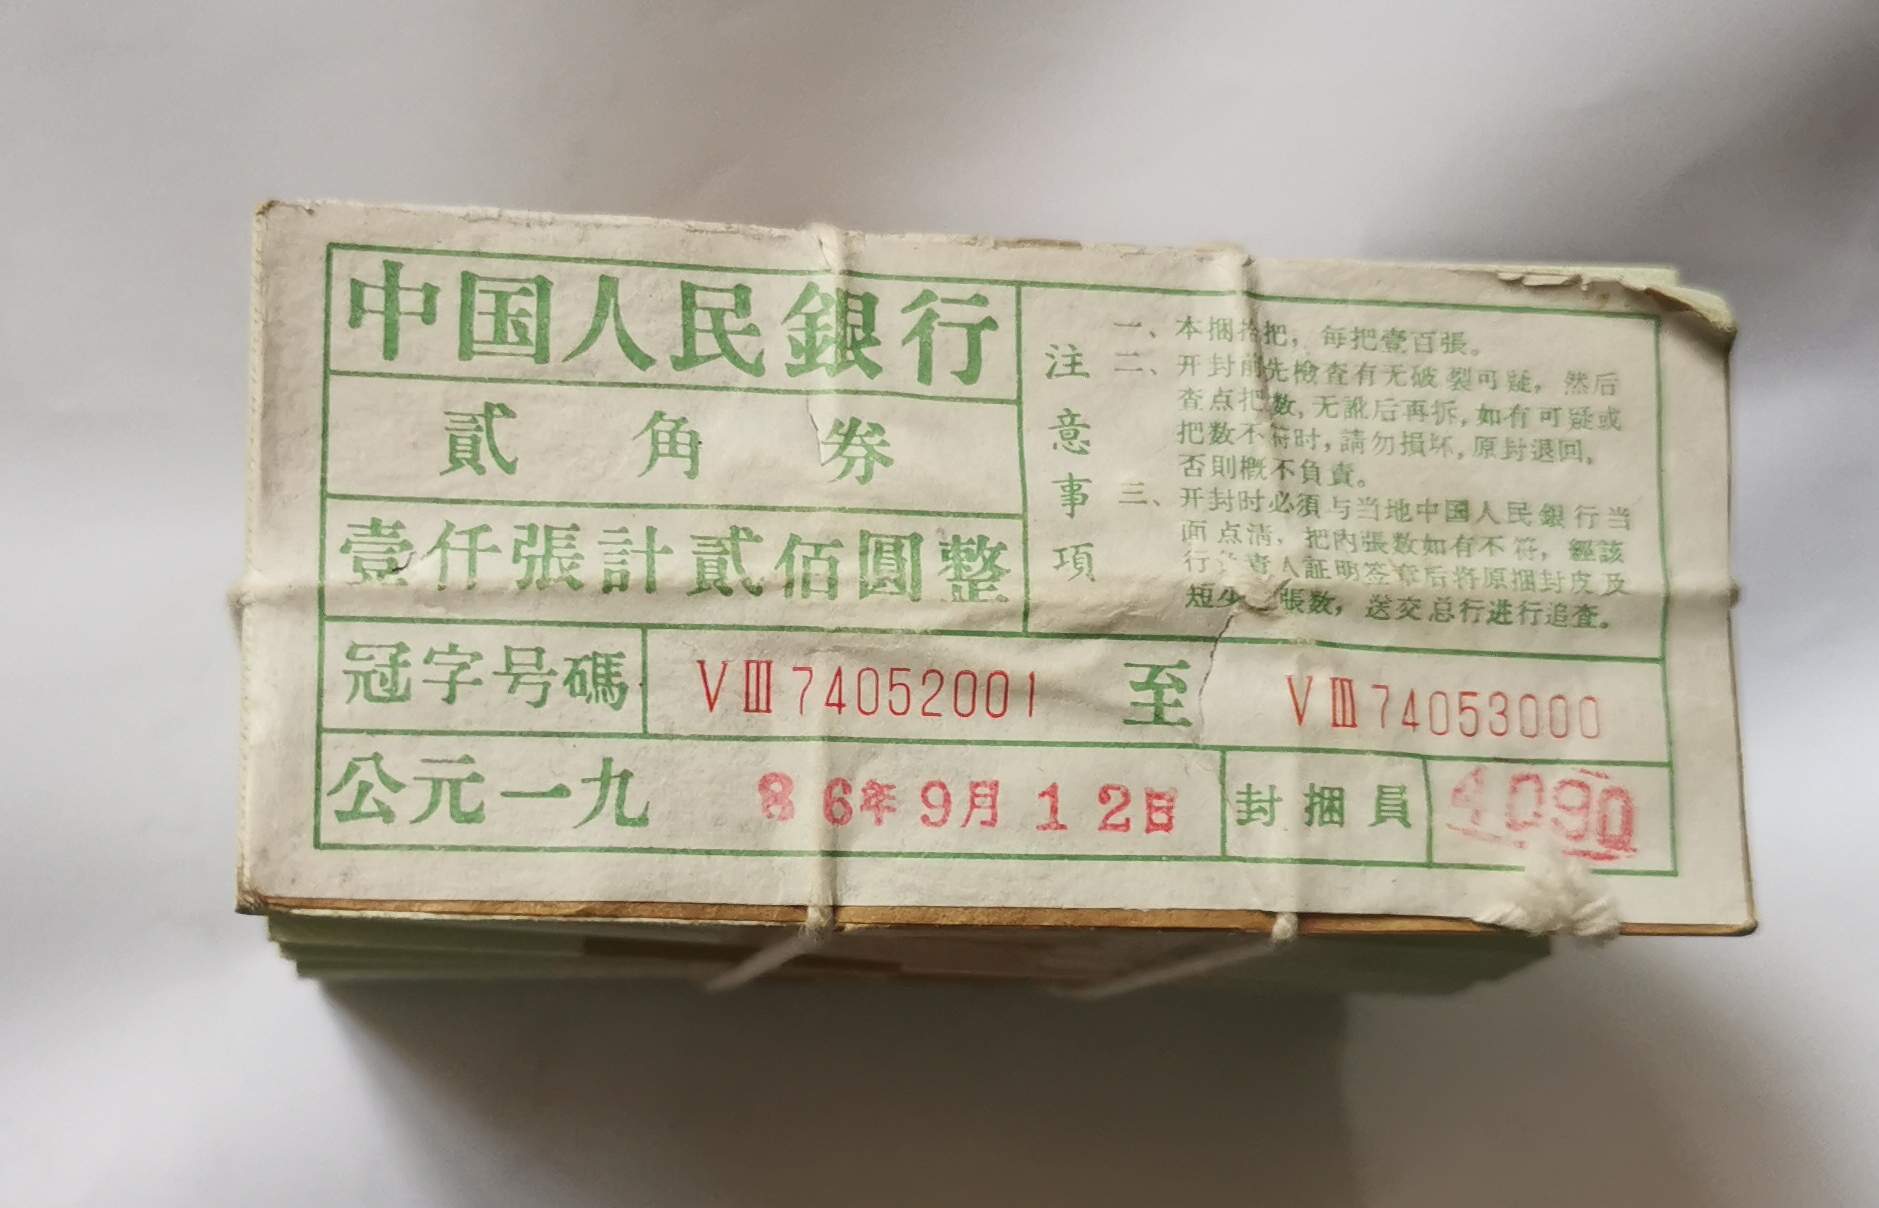 中国人民銀行
貳角券
壹仟張計貳佰圓整
注意事項
一、本捆拾把，每把壹百張。
二、开封前先檢查有无破裂可疑，然后
查点把数，无訛后再拆，如有可疑或
把数不符时，請勿損坏，原封退回，
否則概不負責。
三、开封时必須与当地中国人民銀行当
面点清，把內張数如有不符，經該
行負責人証明签章后将原捆封皮及
短少張数，送交总行进行追查。
冠字号碼 VⅢ74052001 至 VⅢ74053000
公元一九86年9月12日 封捆員 4090